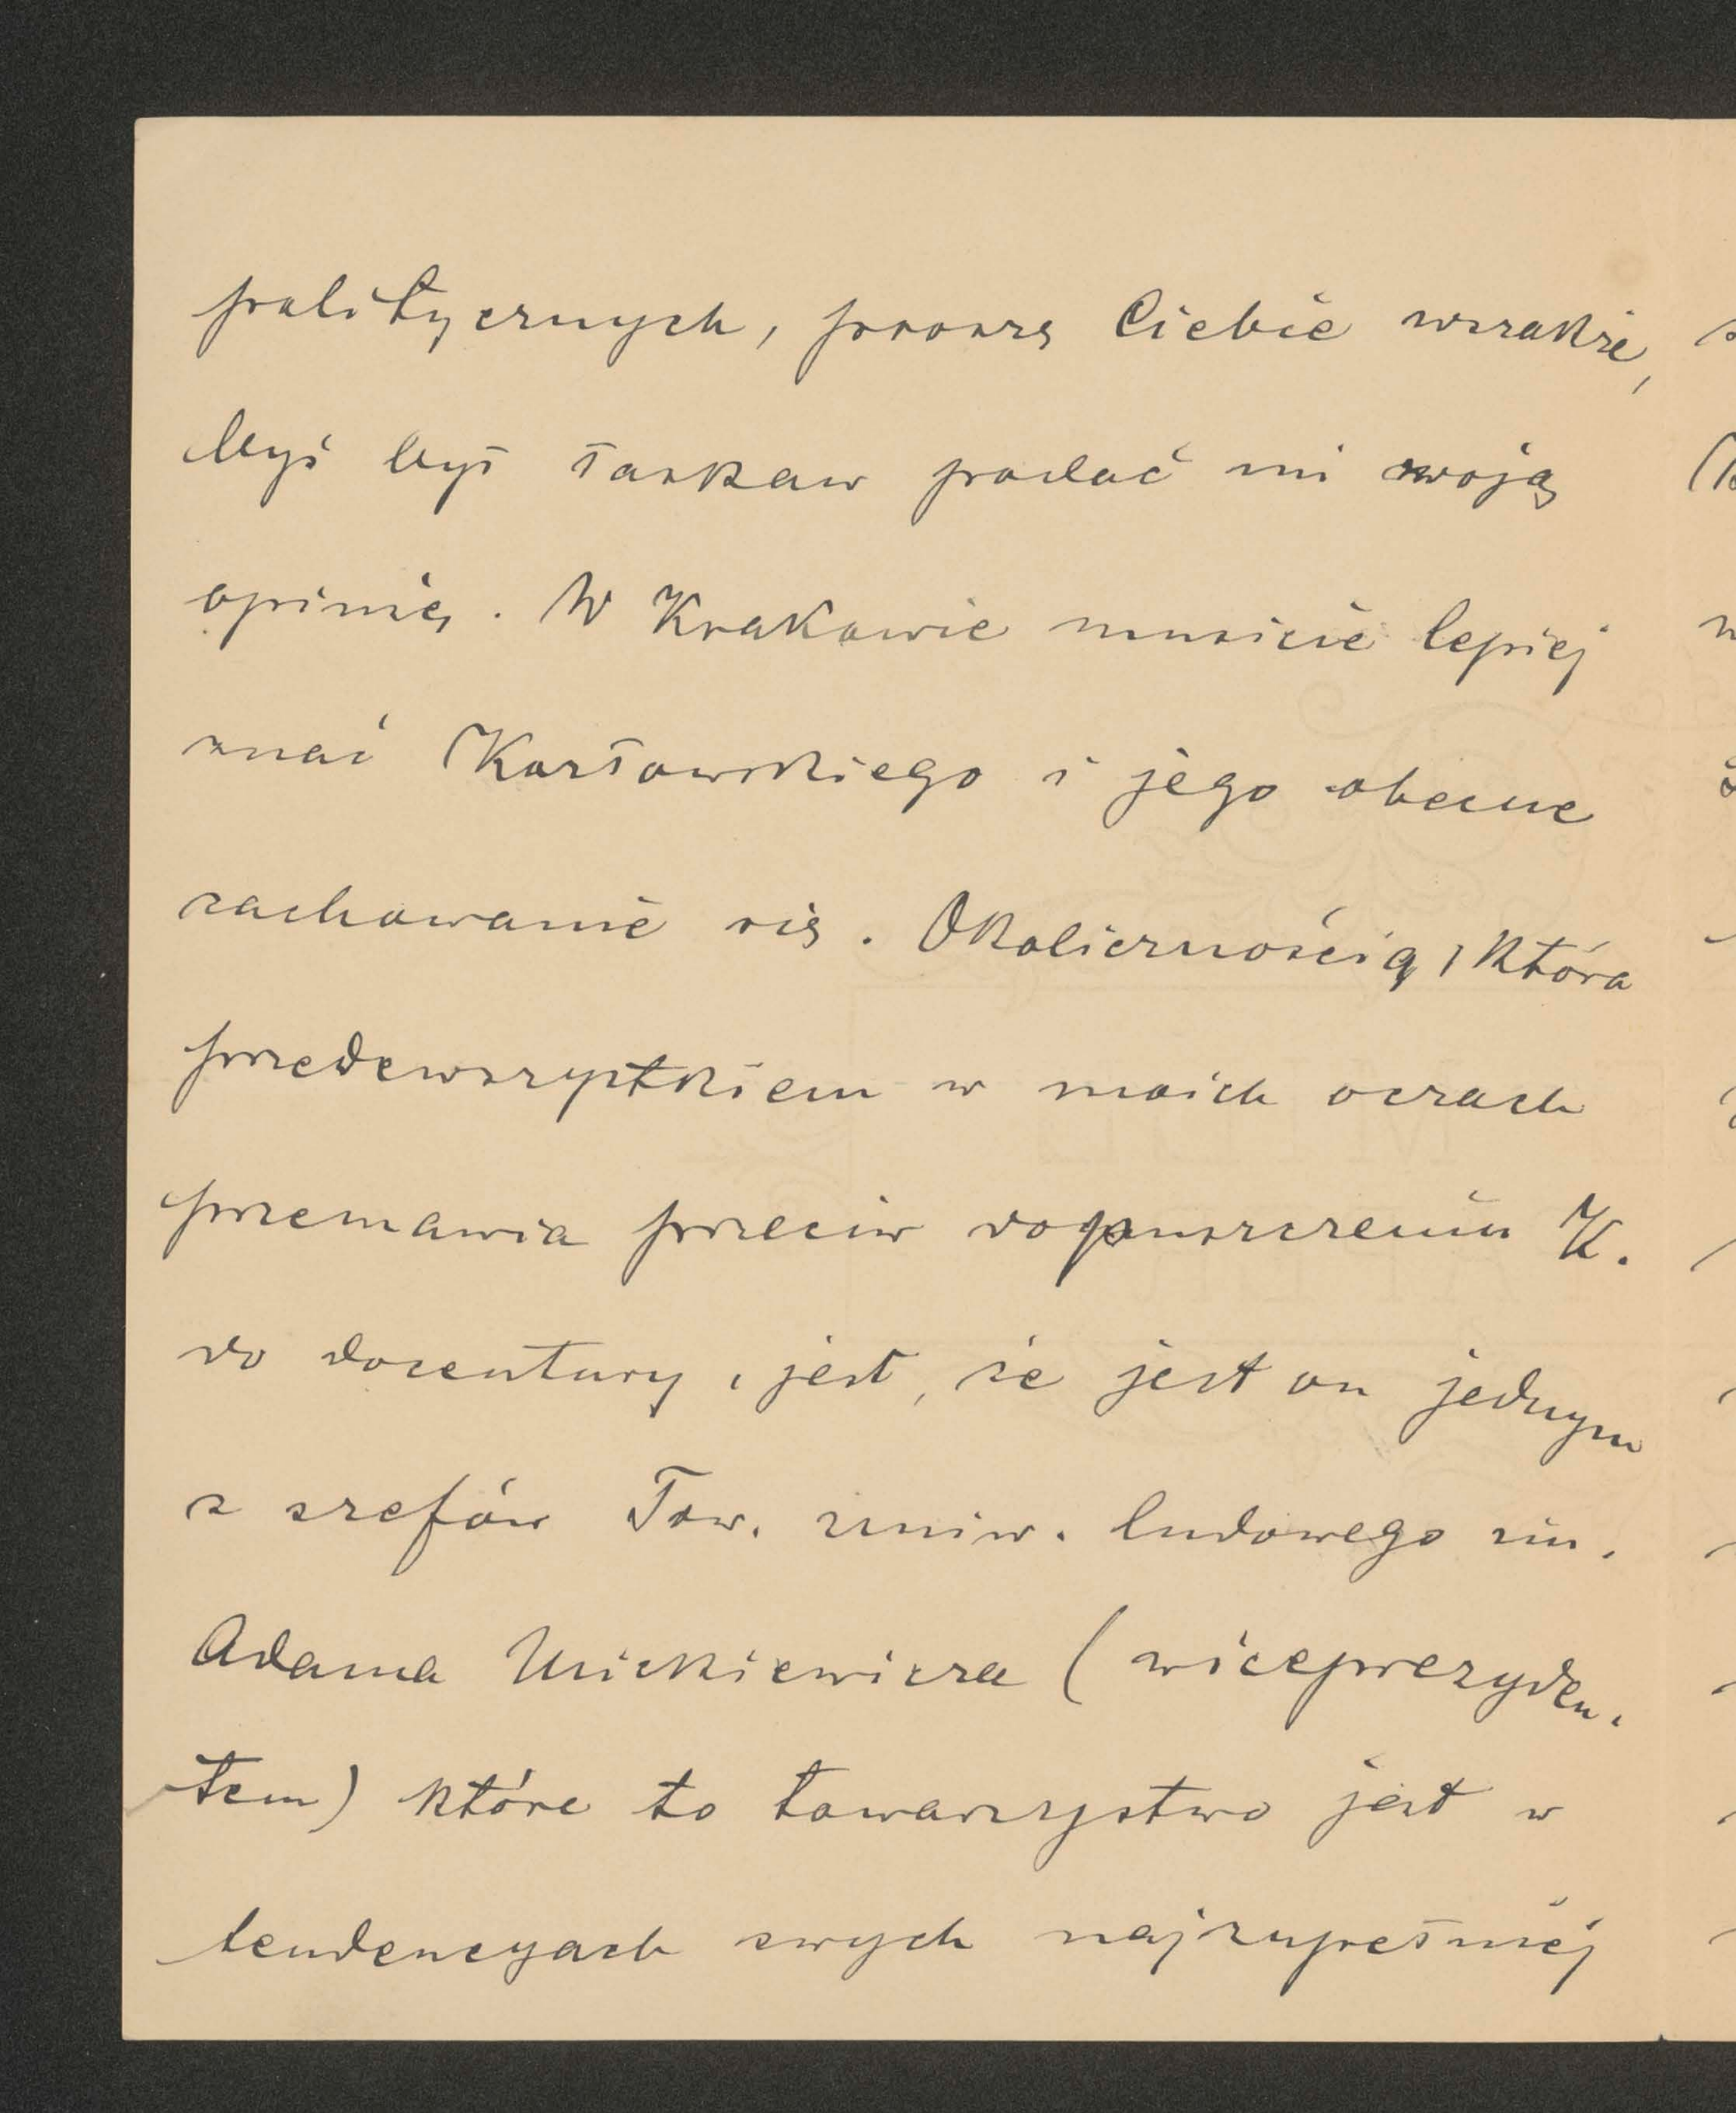 politycznych, proszę Ciebie wszakże,
byś był łaskaw podać mi swoją
opinię. W Krakowie musicie lepiej
znać Kozłowskiego i jego obecne
zachowanie się. Okolicznością, która
przedewszystkiem w moich oczach
przemawia przeciw dopuszczeniu K.
do docentury, jest, że jest on jednym
z szefów Tow. uniw. ludowego im.
Adama Mickiewicza (wiceprezyden-
tem) które to towarzystwo jest w
tendencyach swych najzupełniej